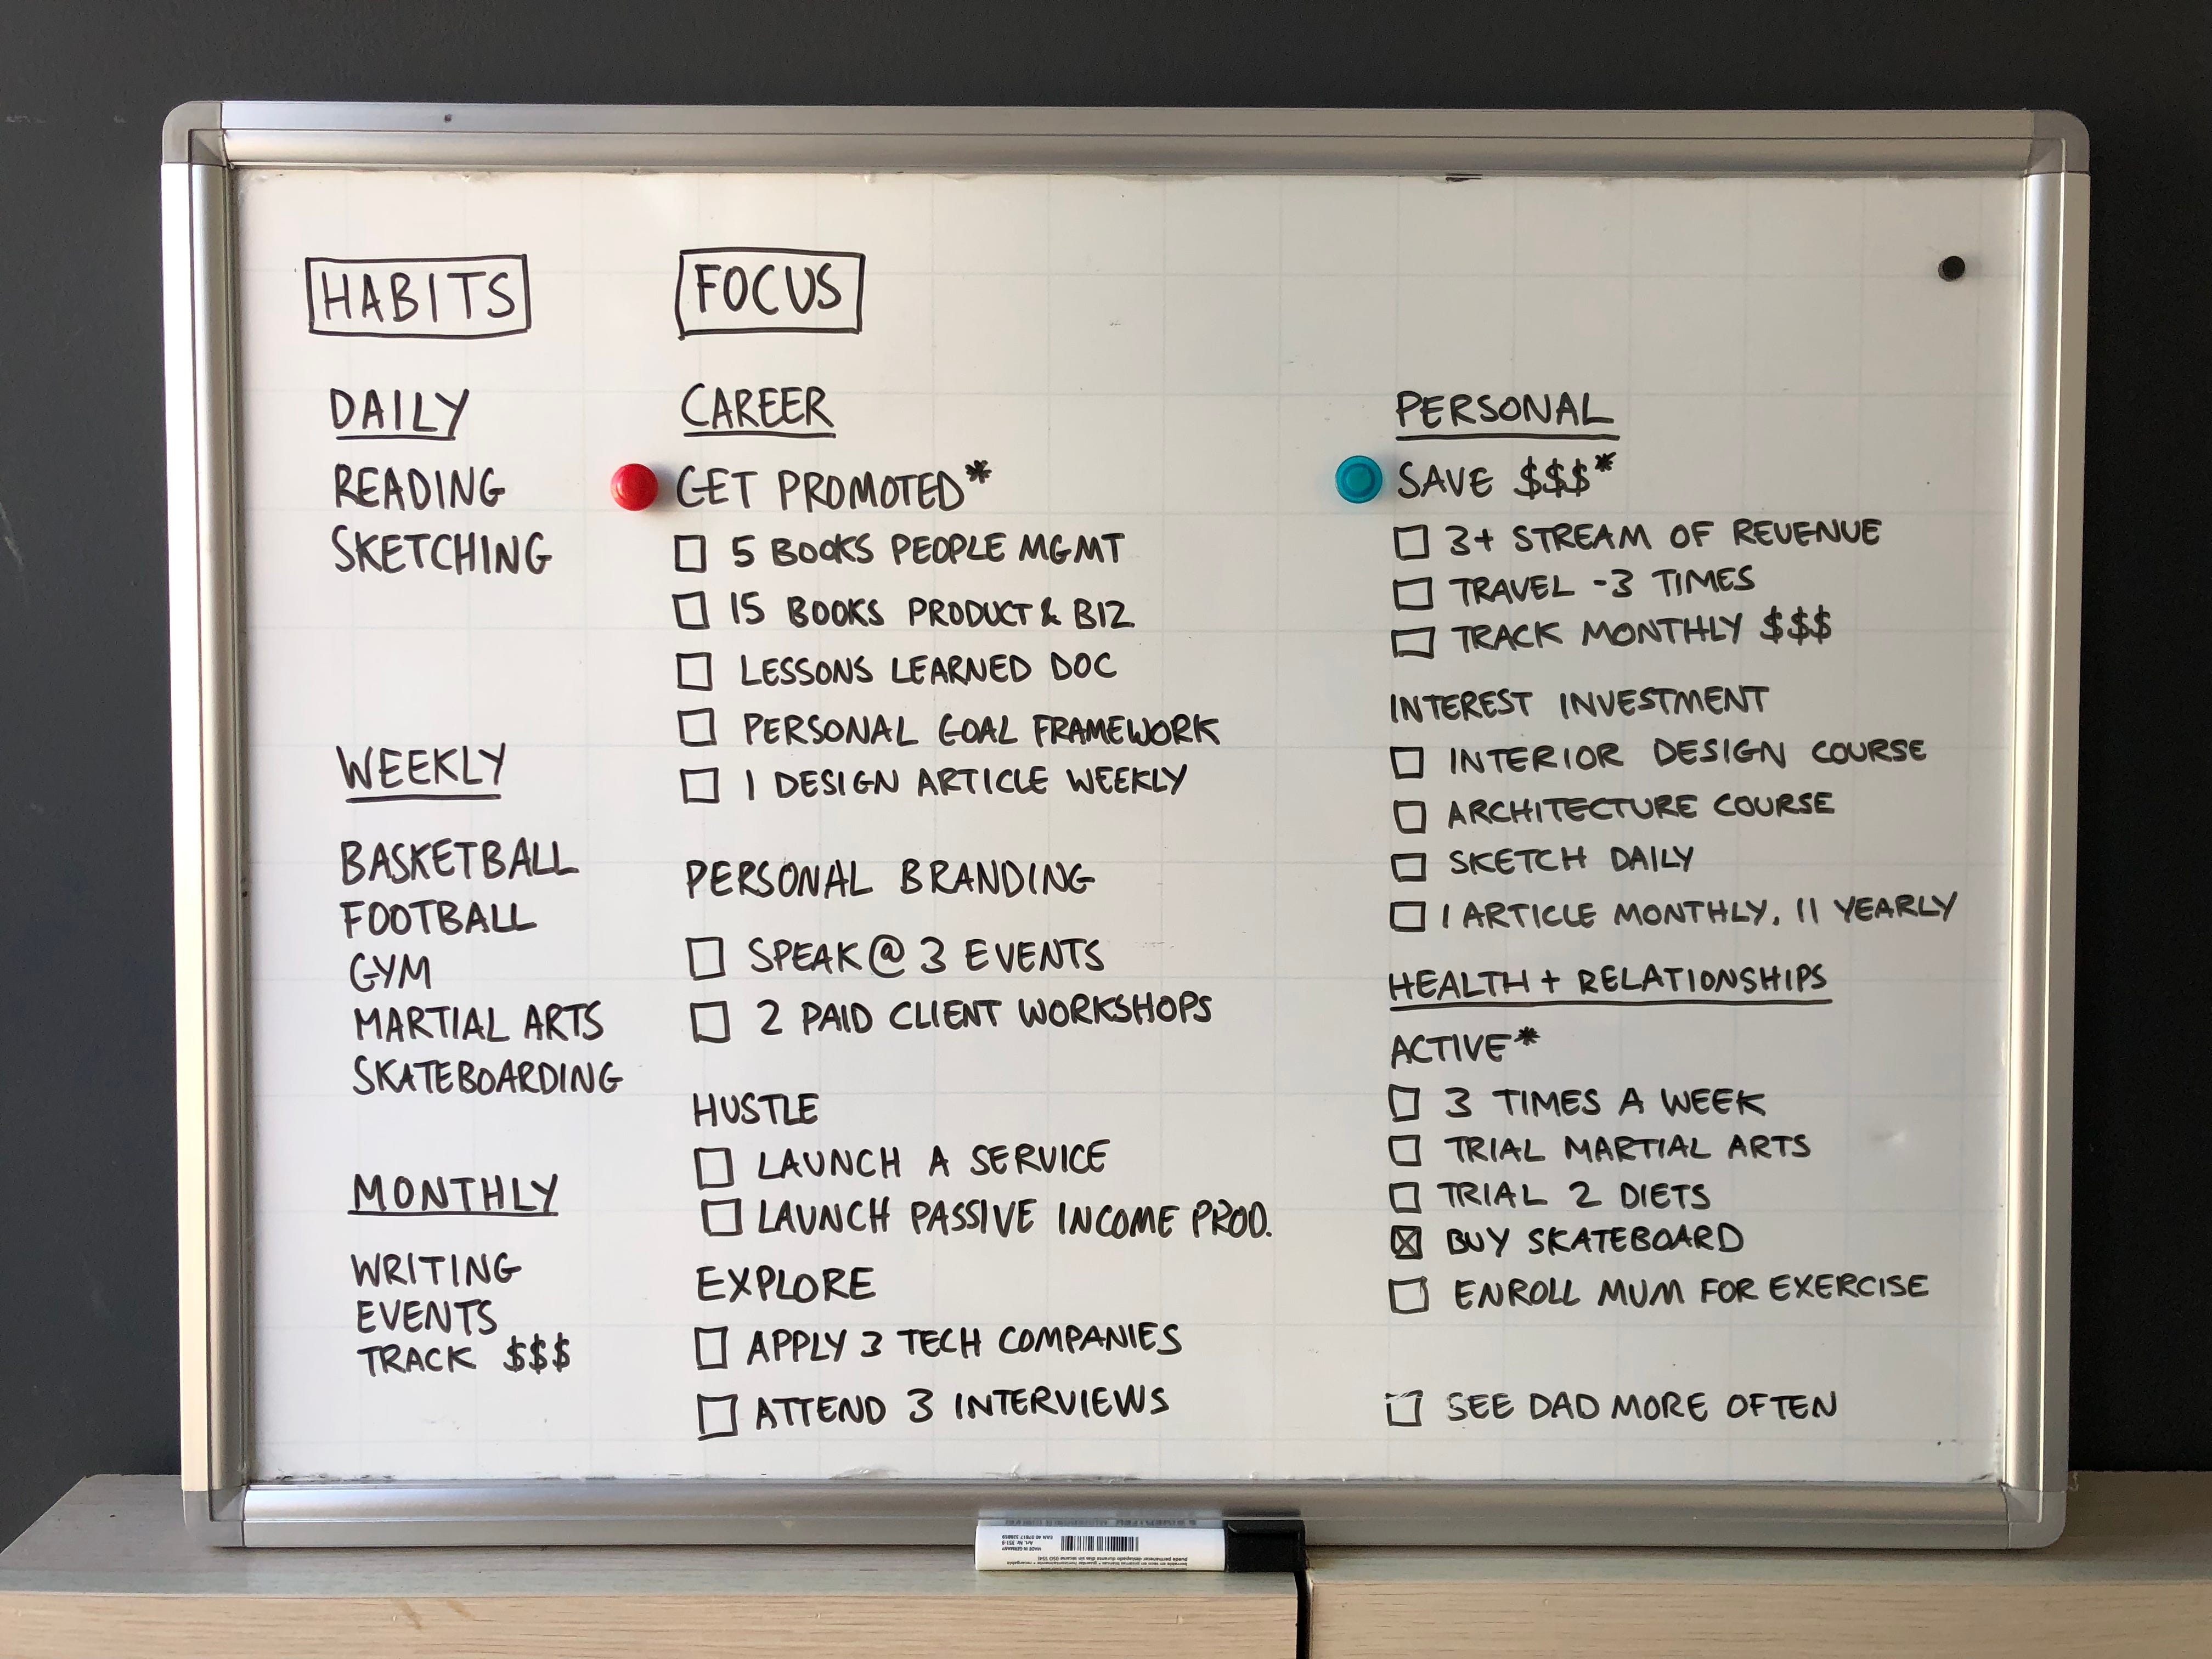 HABITS
DAILY
READING
SKETCHING
WEEKLY
BASKETBALL
FOOTBALL
GYM
MARTIAL ARTS
SKATEBOARDING
MONTHLY
WRITING
EVENTS
TRACK $$$
FOCUS
CAREER
GET PROMOTED*
5 BOOKS PEOPLE MGMT
15 BOOKS PRODUCT & BIZ
LESSONS LEARNED DOC
PERSONAL GOAL FRAMEWORK
1 DESIGN ARTICLE WEEKLY
PERSONAL BRANDING
SPEAK @ 3 EVENTS
2 PAID CLIENT WORKSHOPS
HUSTLE
LAUNCH A SERVICE
LAUNCH PASSIVE INCOME PROD.
EXPLORE
APPLY 3 TECH COMPANIES
ATTEND 3 INTERVIEWS
PERSONAL
SAVE $$$*
3+ STREAM OF REVENUE
TRAVEL -3 TIMES
TRACK MONTHLY $$$
INTEREST INVESTMENT
INTERIOR DESIGN COURSE
ARCHITECTURE COURSE
SKETCH DAILY
1 ARTICLE MONTHLY, 11 YEARLY
HEALTH + RELATIONSHIPS
ACTIVE*
3 TIMES A WEEK
TRIAL MARTIAL ARTS
TRIAL 2 DIETS
BUY SKATEBOARD
ENROLL MUM FOR EXERCISE
SEE DAD MORE OFTEN
MADE IN GERMANY